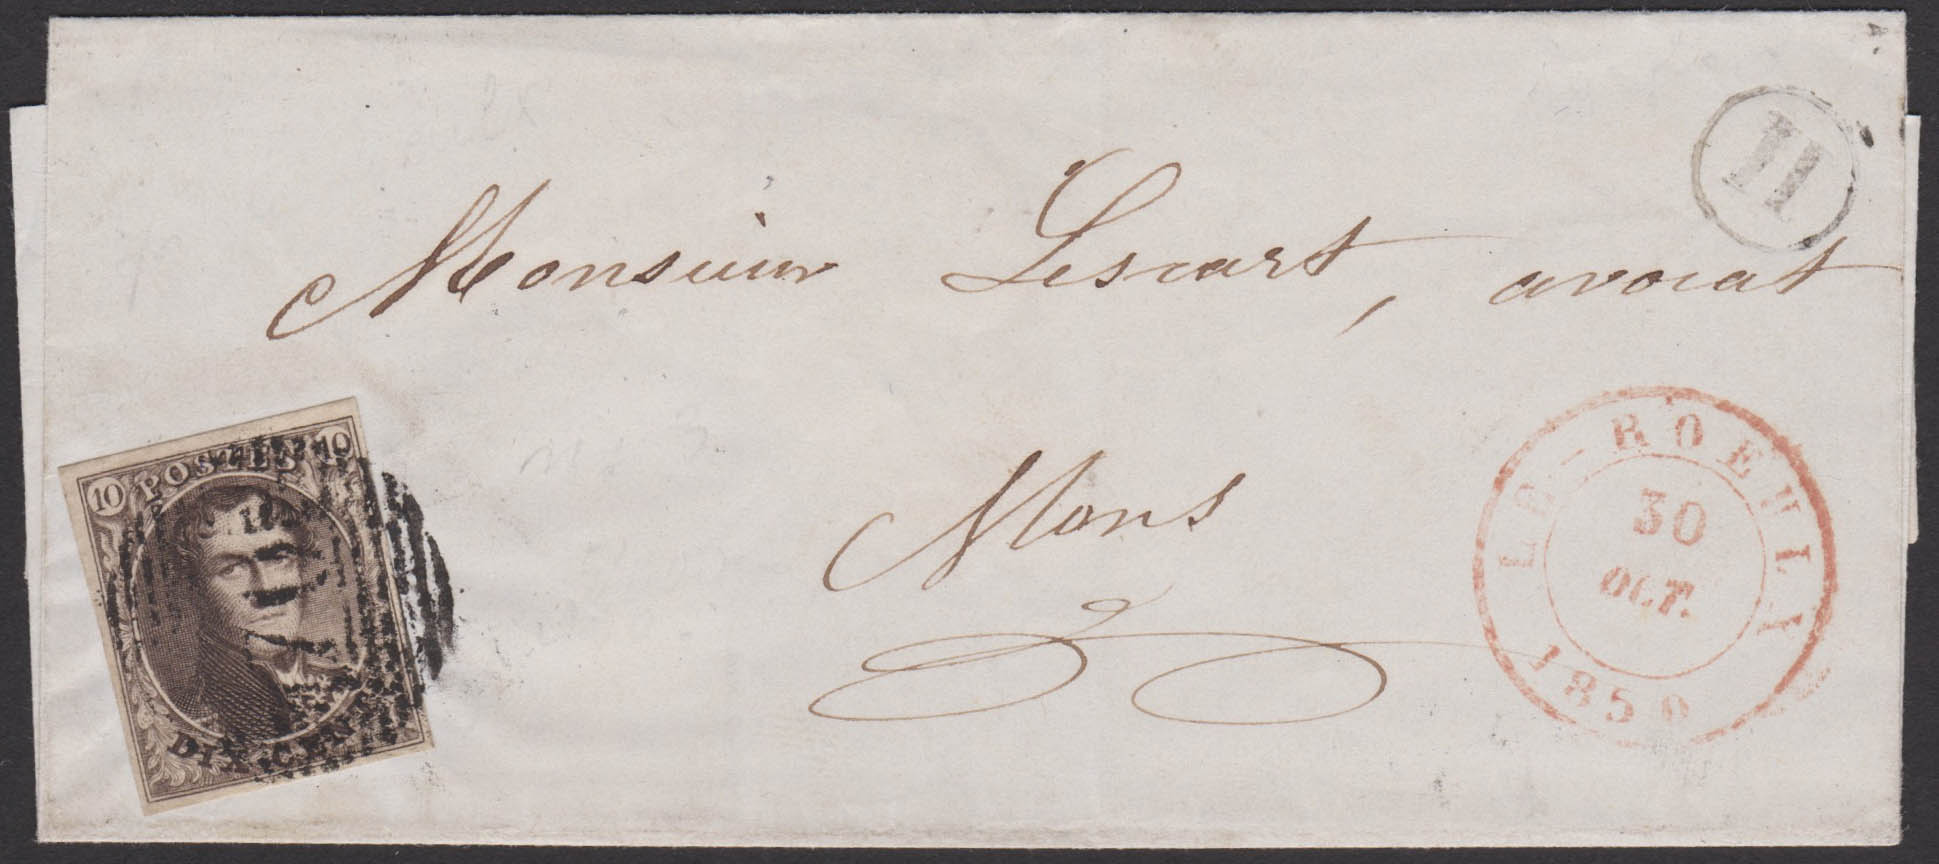 H
Monsieur Lescart, avocat
Mons
10 POSTES 10
DIX CENT
LE-ROEULX
30
OCT.
1850